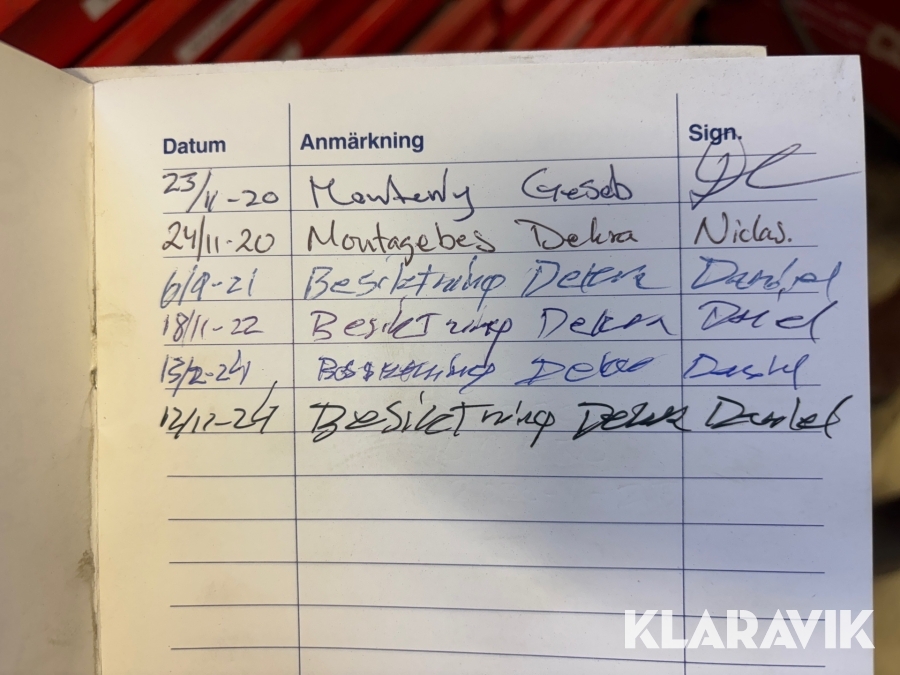 Datum Anmärkning Sign.
23/11-20 Gesab
24/11-20 Montagebes Dekra Niclas.
6/9-21 Besiktning Dekra Daniel
18/11-22 Besiktning Dekra
15/2-24 Besiktning Dekra
12/12-24 Besiktning Dekra Daniel
KLARAVIK